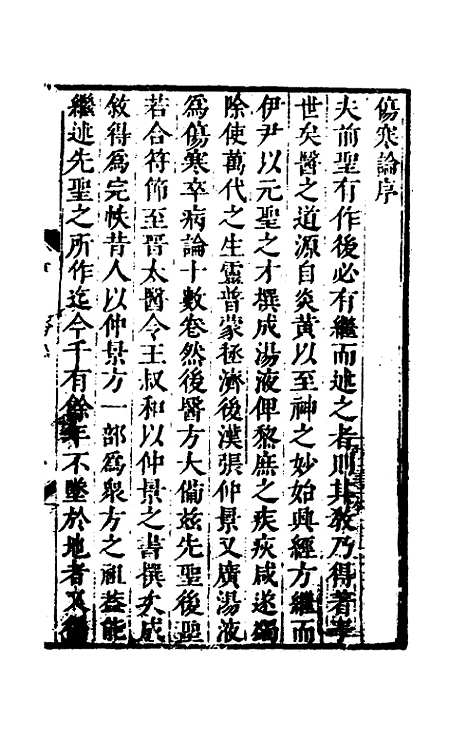 傷寒論序
夫前聖有作後必有繼而述之者則其教乃得著于
世矣醫之道源自炎黃以至神之妙始興經方繼而
伊尹以元聖之才撰成湯液俾黎庶之疾疢咸遂蠲
除使萬代之生靈普蒙拯濟後漢張仲景又廣湯液
爲傷寒卒病論十數卷然後醫方大備茲先聖後聖
若合符節至晉太醫令王叔和以仲景之書撰次成
敘得爲完帙昔人以仲景方一部爲衆方之祖蓋能
繼述先聖之所作迄今千有餘年不墜於地者又